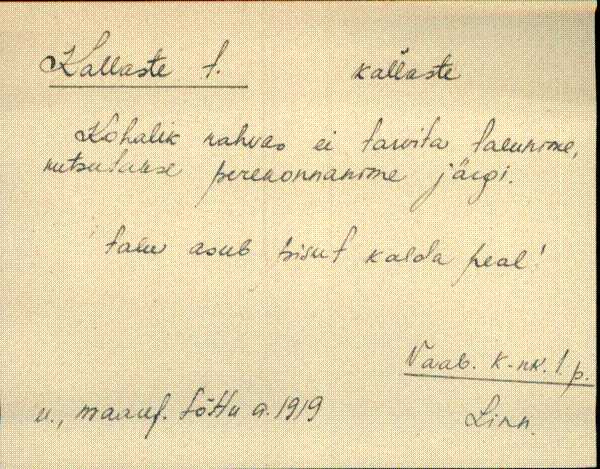 Kallaste t. kallaste
Kohalik rahvas ei tarvita talunime,
kutsutakse perekonnanime järgi.
talu asub kalda peal!
Vaab. k-nk. 1 p.
u., maauf. tõttu a. 1919
Linn.